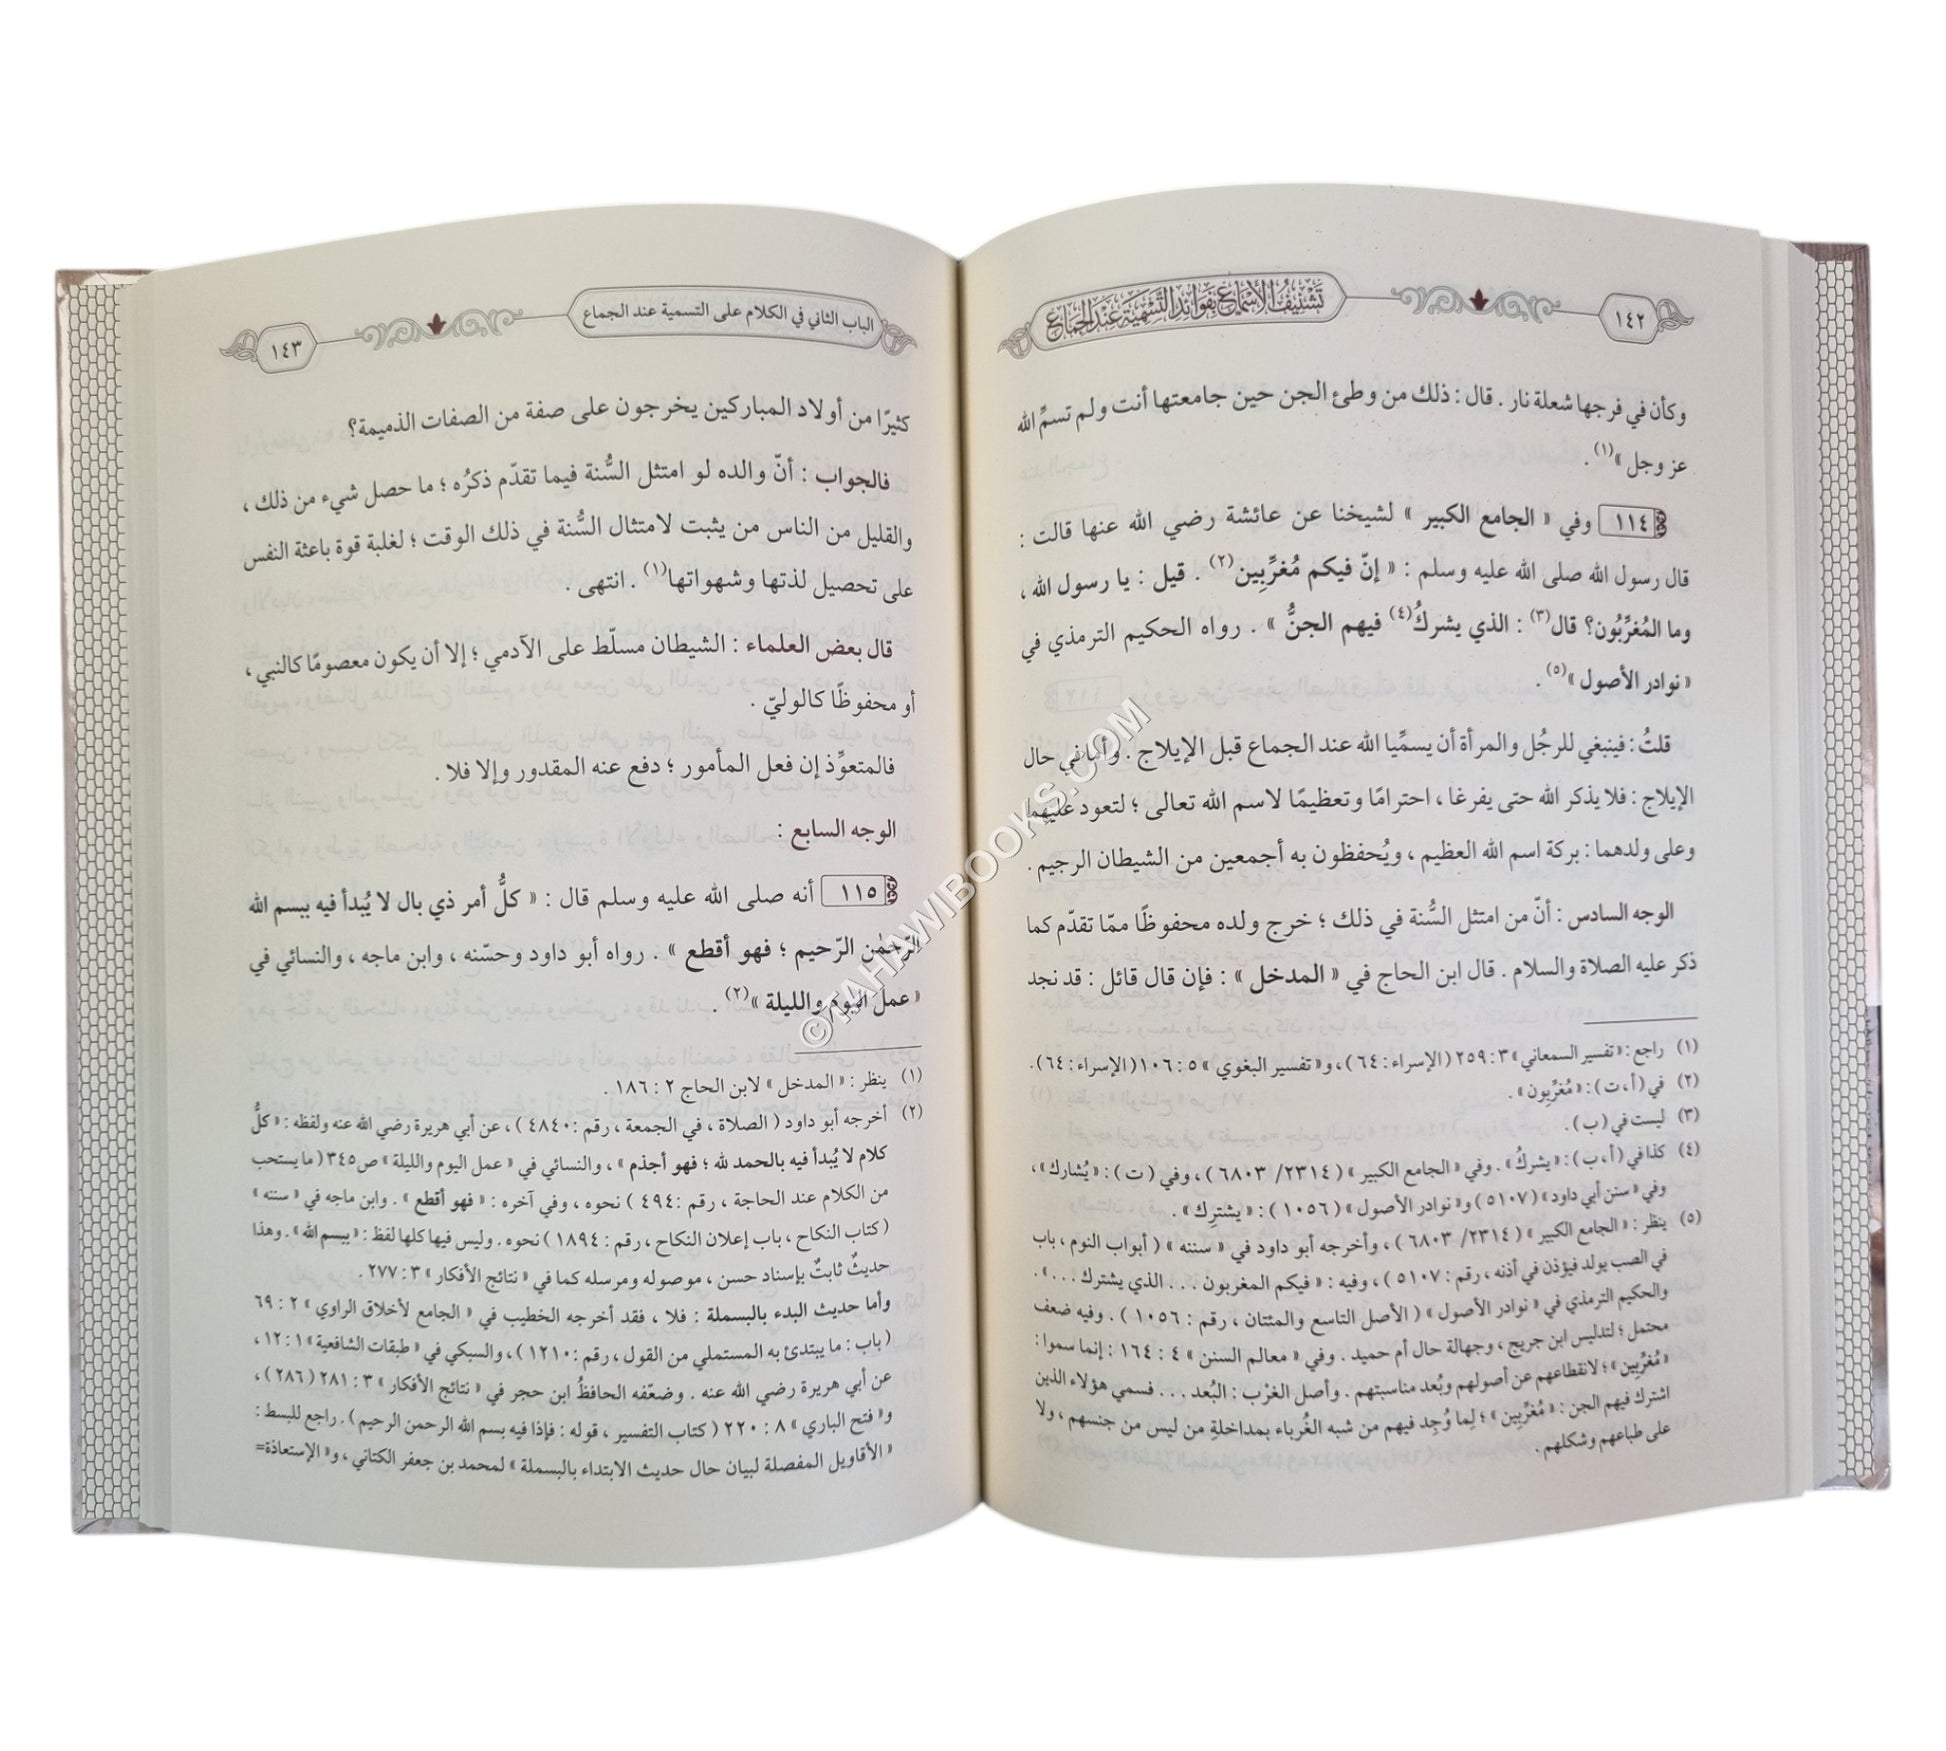 ١٤٢
تشنيف الأسماع بفوائد التسمية عند الجماع
وكأن في فرجها شعلة نار . قال : ذلك من وطئ الجن حين جامعتها أنت ولم تسمِّ الله
عز وجل »(١) .
١١٤ وفي « الجامع الكبير » لشيخنا عن عائشة رضي الله عنها قالت :
قال رسول الله صلى الله عليه وسلم : « إنّ فيكم مُغرِّبين(٢) . قيل : يا رسول الله ،
وما المُغرِّبُون؟ قال(٣) : الذي يشركُ(٤) فيهم الجنُّ » . رواه الحكيم الترمذي في
« نوادر الأصول »(٥) .
قلتُ : فينبغي للرجُل والمرأة أن يسمِّيا الله عند الجماع قبل الإيلاج . وأما في حال
الإيلاج : فلا يذكر الله حتى يفرغا ، احترامًا وتعظيمًا لاسم الله تعالى ؛ لتعود عليهما
وعلى ولدهما : بركة اسم الله العظيم ، ويُحفظون به أجمعين من الشيطان الرجيم .
الوجه السادس : أنّ من امتثل السُّنة في ذلك ؛ خرج ولده محفوظًا ممّا تقدّم كما
ذكر عليه الصلاة والسلام . قال ابن الحاج في « المدخل » : فإن قال قائل : قد نجد
(١) راجع : « تفسير السمعاني » ٣ : ٢٥٩ ( الإسراء : ٦٤ ) ، و« تفسير البغوي » ٥ : ١٠٦ ( الإسراء : ٦٤ ) .
(٢) في ( أ ، ت ) : « مُغرِّبون » .
(٣) ليست في ( ب ) .
(٤) كذا في ( أ ، ب ) : « يشركُ » . وفي « الجامع الكبير » ( ٢٣١٤/ ٦٨٠٣ ) ، وفي ( ت ) : « يُشارك » ،
وفي « سنن أبي داود » ( ٥١٠٧ ) و« نوادر الأصول » ( ١٠٥٦ ) : « يشترِك » .
(٥) ينظر : « الجامع الكبير » ( ٢٣١٤/ ٦٨٠٣ ) ، وأخرجه أبو داود في « سننه » ( أبواب النوم ، باب
في الصب يولد فيؤذن في أذنه ، رقم : ٥١٠٧ ) ، وفيه : « فيكم المغربون . . . الذي يشترك . . . » .
والحكيم الترمذي في « نوادر الأصول » ( الأصل التاسع والمئتان ، رقم : ١٠٥٦ ) . وفيه ضعف
محتمل ؛ لتدليس ابن جريج ، وجهالة حال أم حميد . وفي « معالم السنن » ٤ : ١٦٤ : إنما سموا :
« مُغرِّبين » ؛ لانقطاعهم عن أصولهم وبُعد مناسبتهم . وأصل الغرْب : البُعد . . . فسمي هؤلاء الذين
اشترك فيهم الجن : « مُغرِّبين » ؛ لِما وُجِد فيهم من شبه الغُرباء بمداخلةِ من ليس من جنسهم ، ولا
على طباعهم وشكلهم .
الباب الثاني في الكلام على التسمية عند الجماع
١٤٣
كثيرًا من أولاد المباركين يخرجون على صفة من الصفات الذميمة؟
فالجواب : أنّ والده لو امتثل السُّنة فيما تقدّم ذكرُه ؛ ما حصل شيء من ذلك ،
والقليل من الناس من يثبت لامتثال السُّنة في ذلك الوقت ؛ لغلبة قوة باعثة النفس
على تحصيل لذتها وشهواتها(١) . انتهى .
قال بعض العلماء : الشيطان مسلّط على الآدمي ؛ إلا أن يكون معصومًا كالنبي ،
أو محفوظًا كالوليّ .
فالمتعوِّذ إن فعل المأمور ؛ دفع عنه المقدور وإلا فلا .
الوجه السابع :
١١٥ أنه صلى الله عليه وسلم قال : « كلُّ أمر ذي بال لا يُبدأ فيه ببسم الله
الرّحمٰن الرّحيم ؛ فهو أقطع » . رواه أبو داود وحسّنه ، وابن ماجه ، والنسائي في
« عمل اليوم والليلة »(٢) .
(١) ينظر : « المدخل » لابن الحاج ٢ : ١٨٦ .
(٢) أخرجه أبو داود ( الصلاة ، في الجمعة ، رقم : ٤٨٤٠ ) ، عن أبي هريرة رضي الله عنه ولفظه : « كلُّ
كلام لا يُبدأ فيه بالحمد لله ؛ فهو أجذم » ، والنسائي في « عمل اليوم والليلة » ص٣٤٥ ( ما يستحب
من الكلام عند الحاجة ، رقم : ٤٩٤ ) نحوه ، وفي آخره : « فهو أقطع » . وابن ماجه في « سننه »
( كتاب النكاح ، باب إعلان النكاح ، رقم : ١٨٩٤ ) نحوه . وليس فيها كلها لفظ : « ببسم الله » . وهذا
حديثٌ ثابتٌ بإسناد حسن ، موصوله ومرسله كما في « نتائج الأفكار » ٣ : ٢٧٧ .
وأما حديث البدء بالبسملة : فلا ، فقد أخرجه الخطيب في « الجامع لأخلاق الراوي » ٢ : ٦٩
( باب : ما يبتدئ به المستملي من القول ، رقم : ١٢١٠ ) ، والسبكي في « طبقات الشافعية » ١ : ١٢ ،
عن أبي هريرة رضي الله عنه . وضعّفه الحافظُ ابن حجر في « نتائج الأفكار » ٣ : ٢٨١ ( ٢٨٦ ) ،
و« فتح الباري » ٨ : ٢٢٠ ( كتاب التفسير ، قوله : فإذا فيه بسم الله الرحمن الرحيم ) . راجع للبسط :
« الأقاويل المفصلة لبيان حال حديث الابتداء بالبسملة » لمحمد بن جعفر الكتاني ، و« الإستعاذة=
©TAHAWIBOOKS.COM